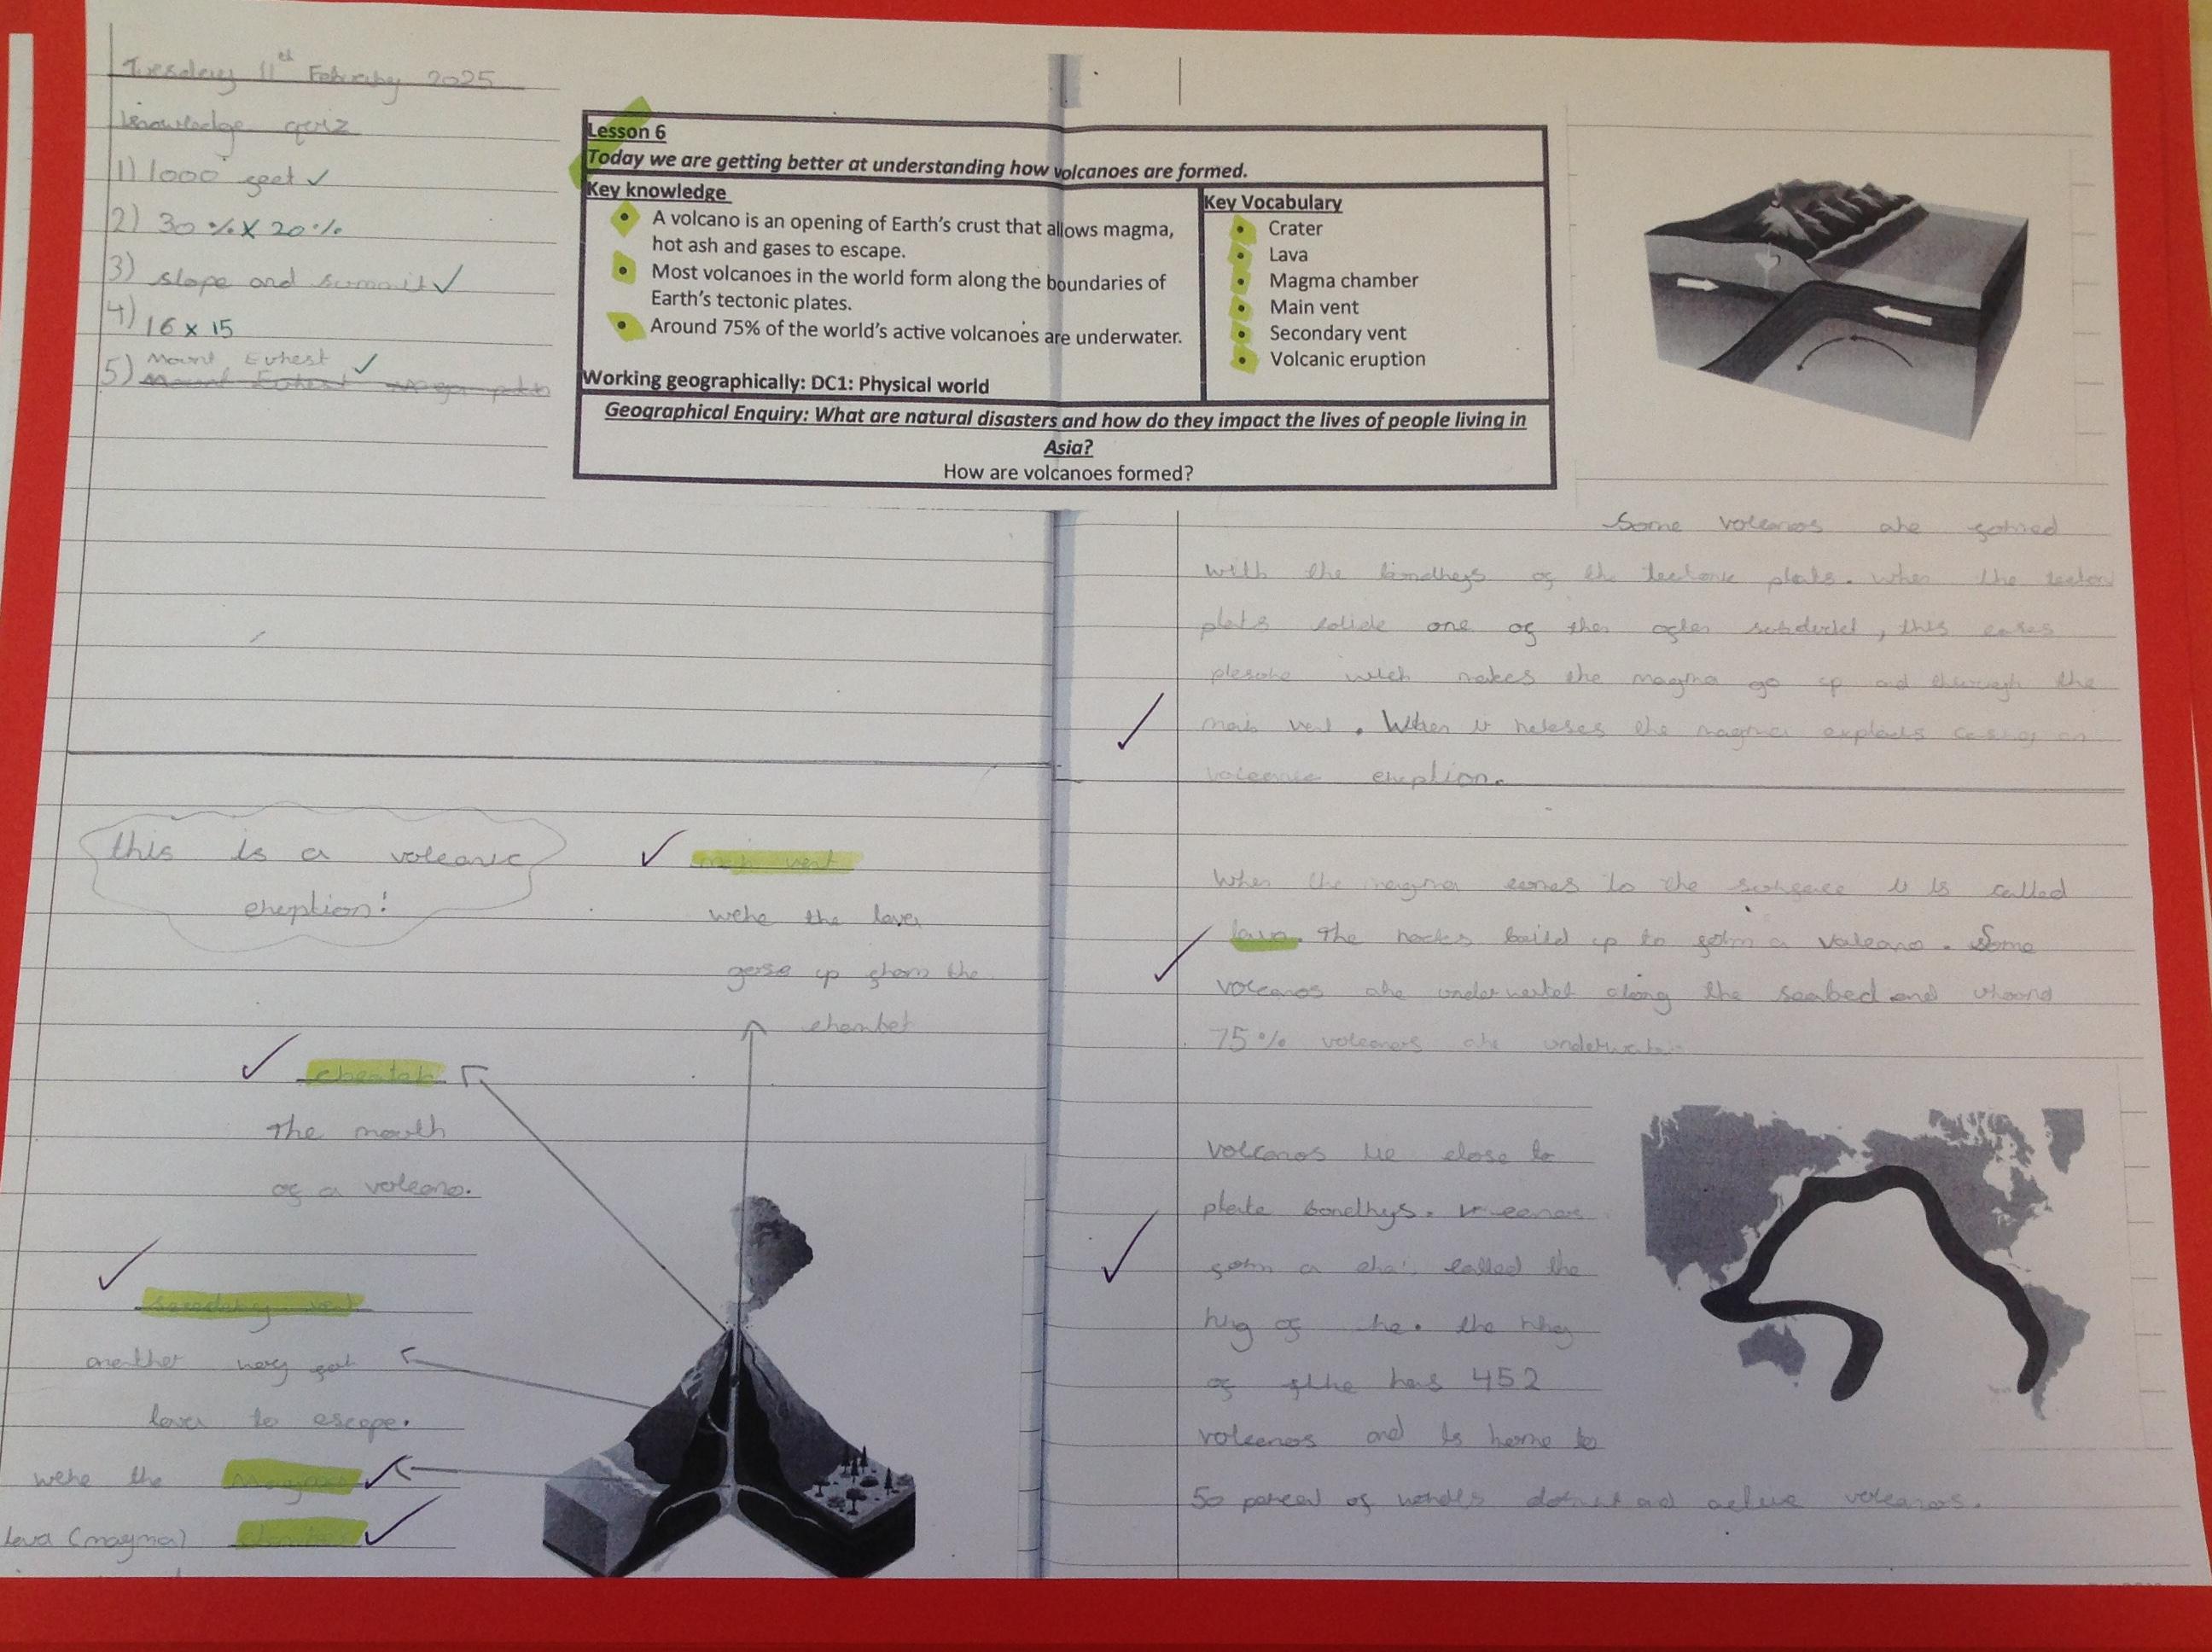 Tuesday 11th February 2025
knowledge quiz
1) 1000 feet ✓
2) 30% X 20%
3) slope and summit ✓
4) 16 x 15
5) Mount Evhest ✓
Mount Evhest
Lesson 6
Today we are getting better at understanding how volcanoes are formed.
Key knowledge
• A volcano is an opening of Earth's crust that allows magma,
hot ash and gases to escape.
• Most volcanoes in the world form along the boundaries of
Earth's tectonic plates.
• Around 75% of the world's active volcanoes are underwater.
Working geographically: DC1: Physical world
Key Vocabulary
• Crater
• Lava
• Magma chamber
• Main vent
• Secondary vent
• Volcanic eruption
Geographical Enquiry: What are natural disasters and how do they impact the lives of people living in
Asia?
How are volcanoes formed?
this is a volcanic
ehuption!
main vent
wehe the lava
gose up fhom the
chambet
The mouth
of a volcano.
secondary vent
another way
lava to escope.
wehe the Magma
lava (magma)
Some volcanos ahe fohmed
with the of the tectonic plats. when the
plats colide one of then, this
makes the magma go up and through the
main vent. When it the magma
volcanic ehuption.
When the magma comes to the suhface it is called
lava. The hocks build up to fohm a Volcano. Some
volcanos ahe along the seabed and
75% volcanos ahe
volcanos lie close to
plate bondhys.
fohm a called the
of the
of has 452
volcanos and is home to
50 of and active volcanos.